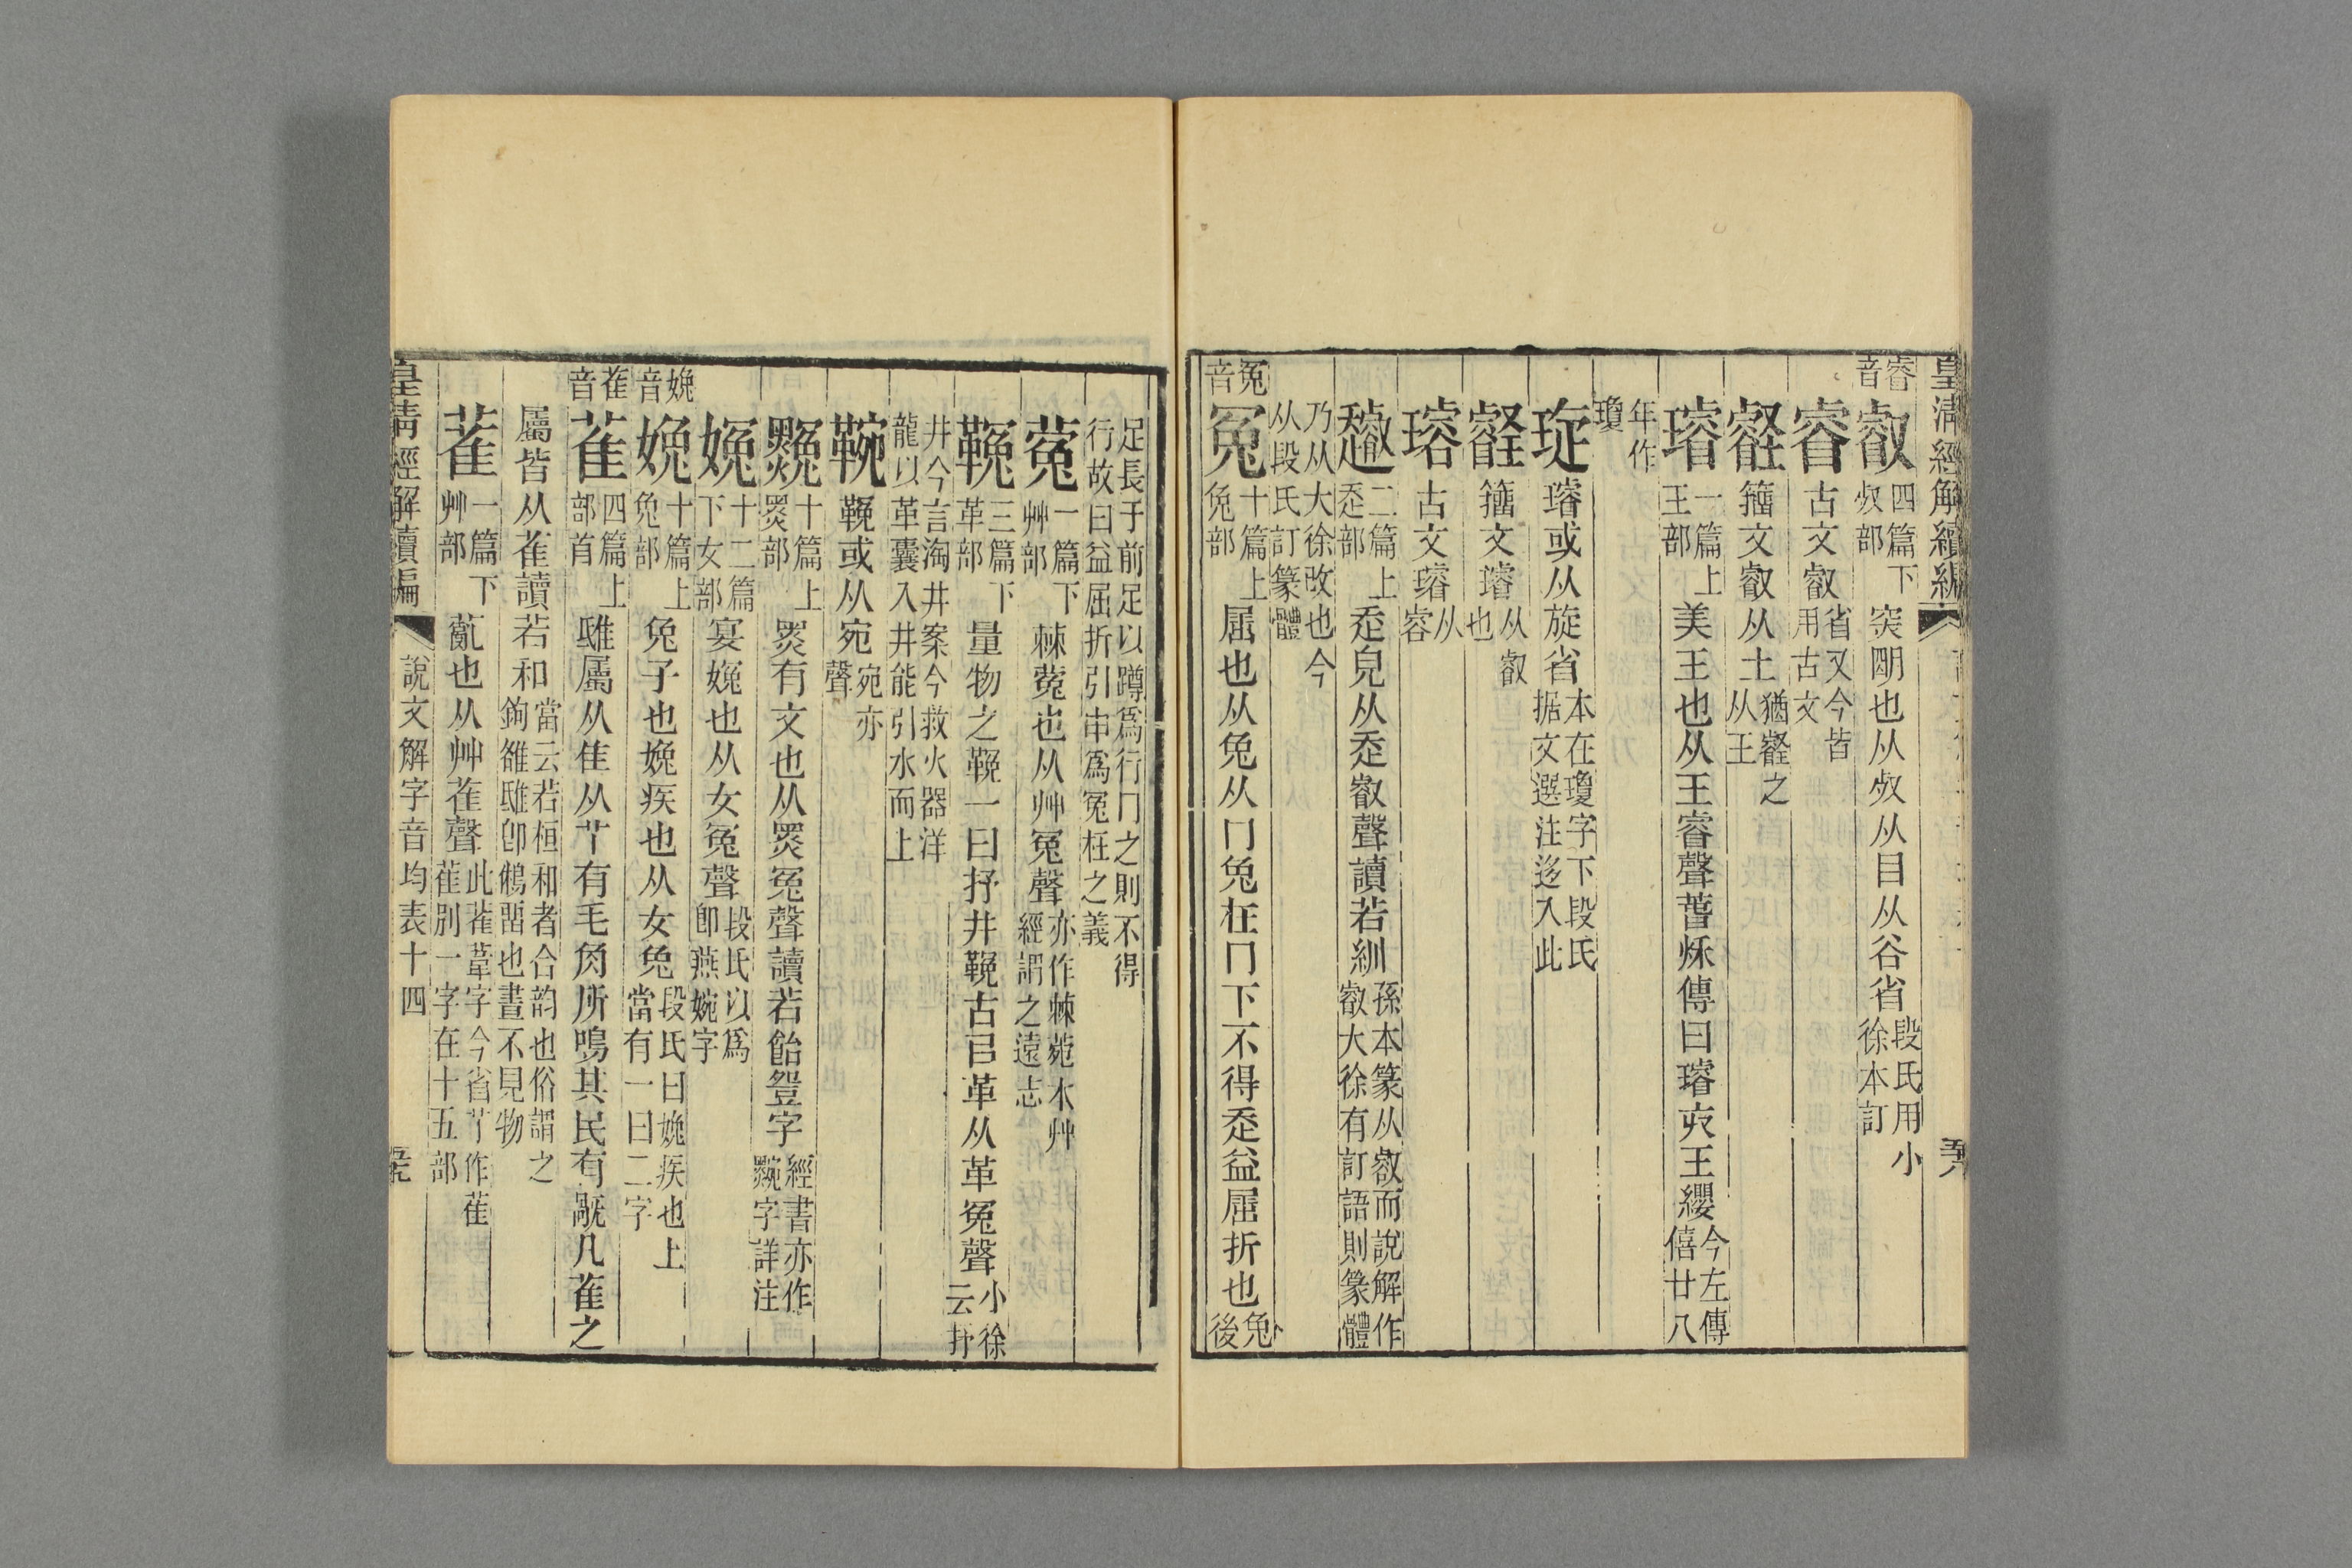 皇清經解續編
睿音
叡四篇下𣦼部 突䦕也从𣦼从目从谷省段氏用小徐本訂
睿 古文叡省又今皆用古文
壡 籀文叡从土猶壡之从王
璿一篇上王部 美王也从王睿聲萅秌傳曰璿弁王纓今左傳僖廿八
年作瓊
琁 璿或从旋省本在瓊字下段氏据文選注迻入此
籀文璿从叡也
古文璿从容
二篇上走部 走皃从走叡聲讀若紃孫本篆从叡而說解作叡大徐有訂語則篆體
乃从大徐攺也今从段氏訂篆體
冤音
冤十篇上兔部 屈也从兔从冂兔在冂下不得走益屈折也兔後
足長于前足以蹲爲行冂之則不得行故曰益屈折引申爲冤枉之義
蒬一篇下艸部 棘蒬也从艸冤聲亦作棘菀木艸經謂之遠志
鞔三篇下革部 量物之鞔一曰抒井鞔古㠯革从革冤聲小徐云抒
井今言淘井案今救火器洋龍以革囊入井能引水而上
鞔或从宛宛亦聲
十篇上黑部 黑有文也从黑冤聲讀若飴䇺字經書亦作黦字詳注
十二篇下女部 宴婏也从女冤聲段氏以爲卽燕婉字
婏音
婏十篇上兔部 兔子也婏疾也从女兔段氏曰婏疾也上當有一曰二字
雈音
雈四篇上部首 鴟屬从隹从𦫳有毛角所鳴其民有旤凡雈之
屬皆从雈讀若和當云若桓和者合韵也俗謂之鉤雒鴟卽鵂畱也晝不見物
萑一篇下艸部 薍也从艸萑聲此萑葦字今省艹作萑萑別一字在十五部
皇清經解續編
說文解字音均表十四